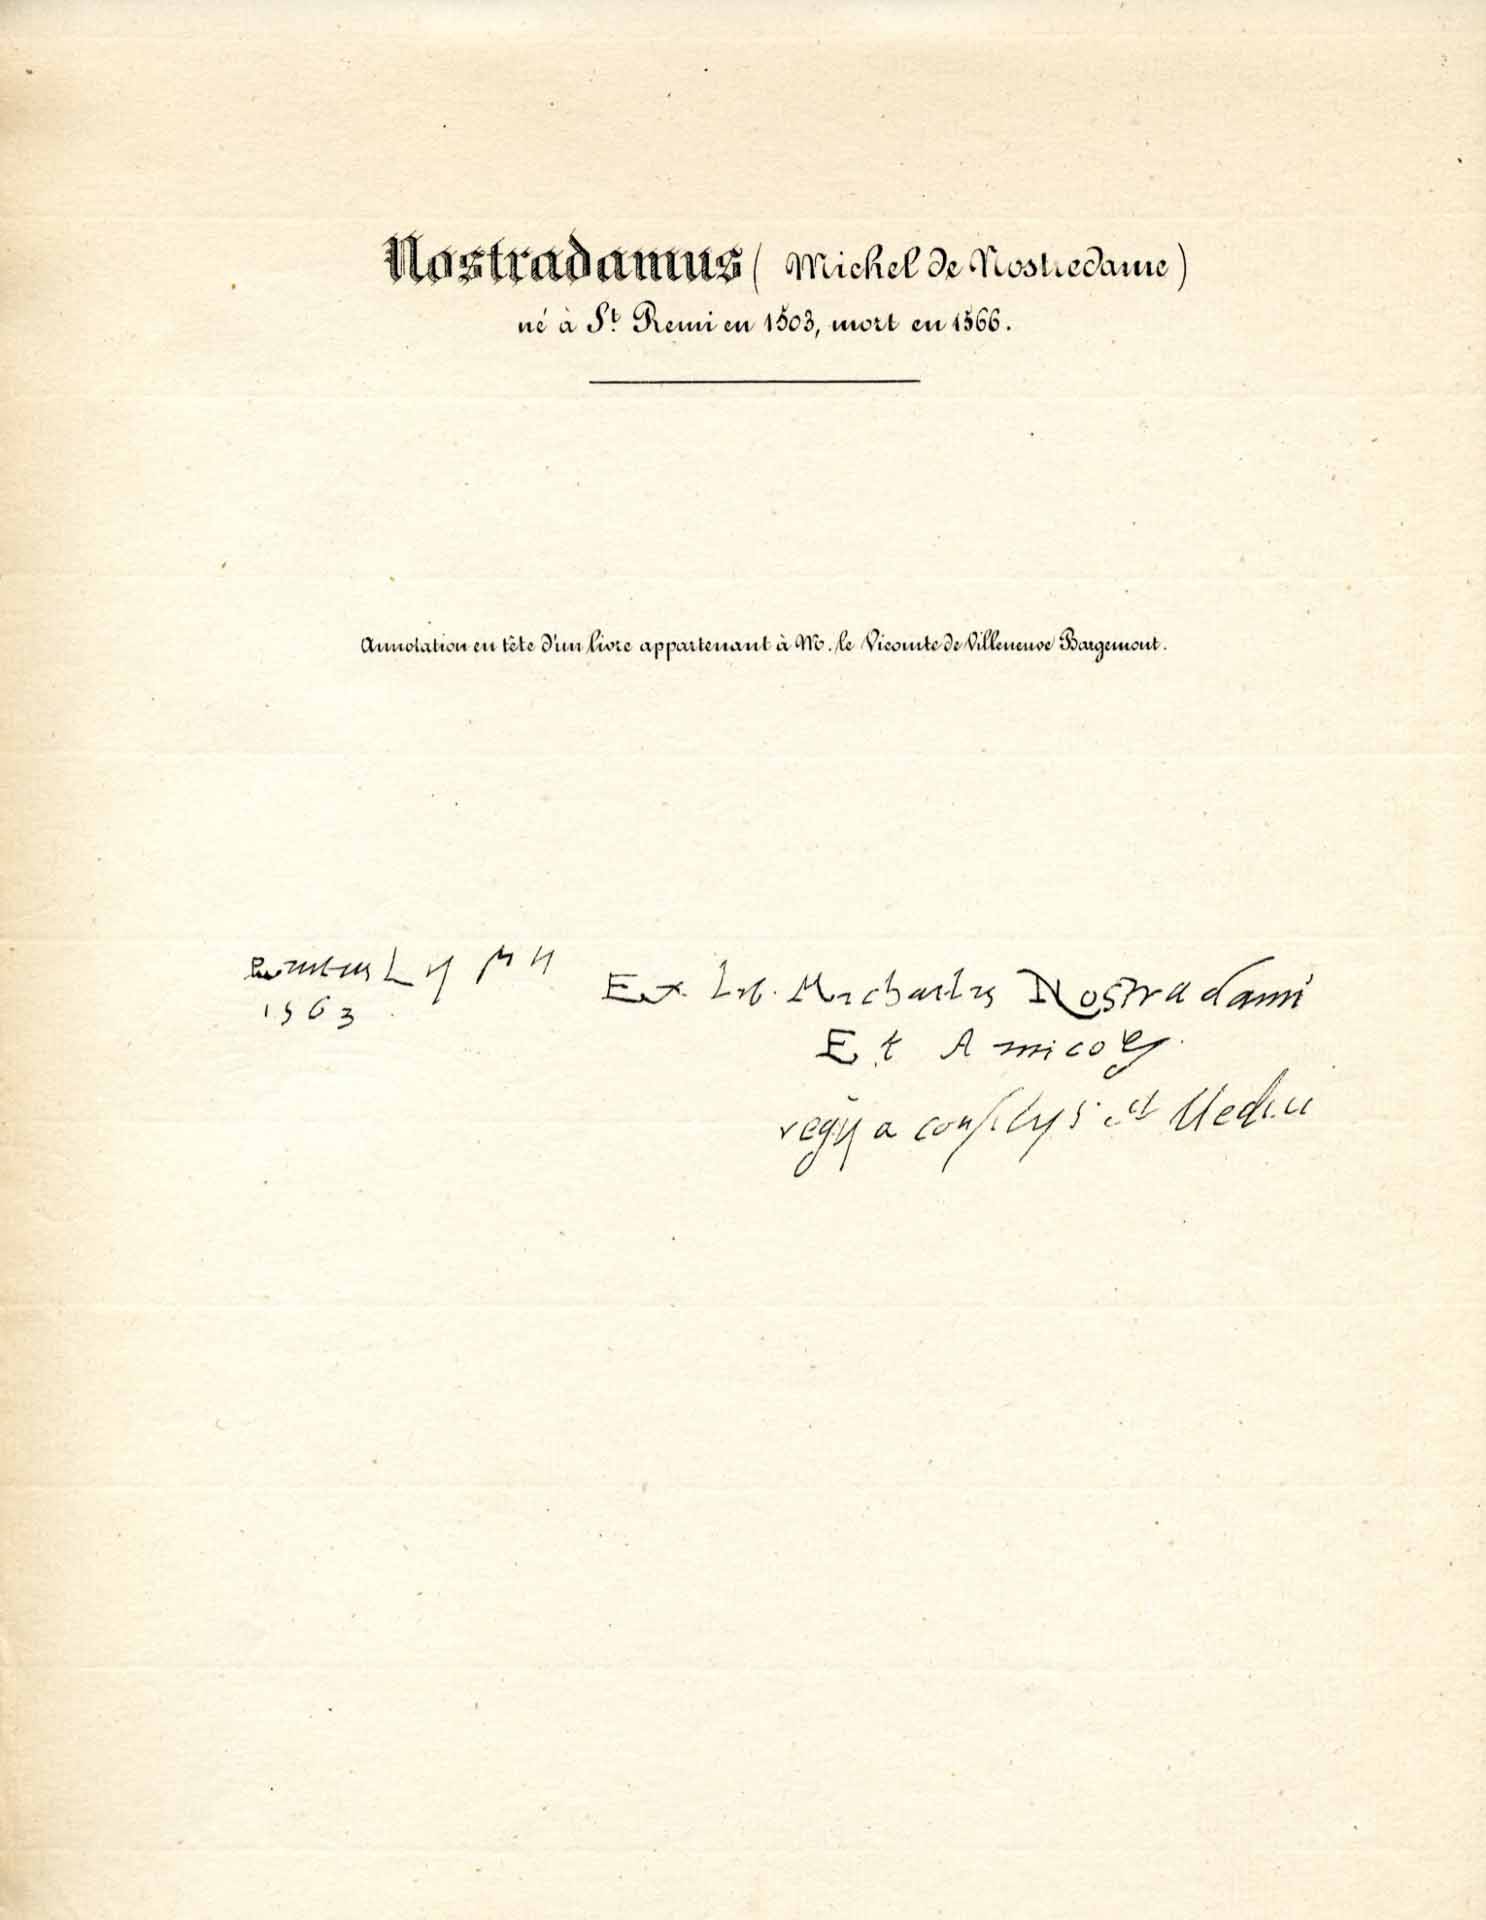 Nostradamus (Michel de Nostredame)
né à St. Remi en 1503, mort en 1566.
Annotation en tête d'un livre appartenant à M. le Vicomte de Villeneuve Bargemont.
1563
Ex. Lib. Michaelis Nostradami
Et Amicor
regij a consilijs et Medici